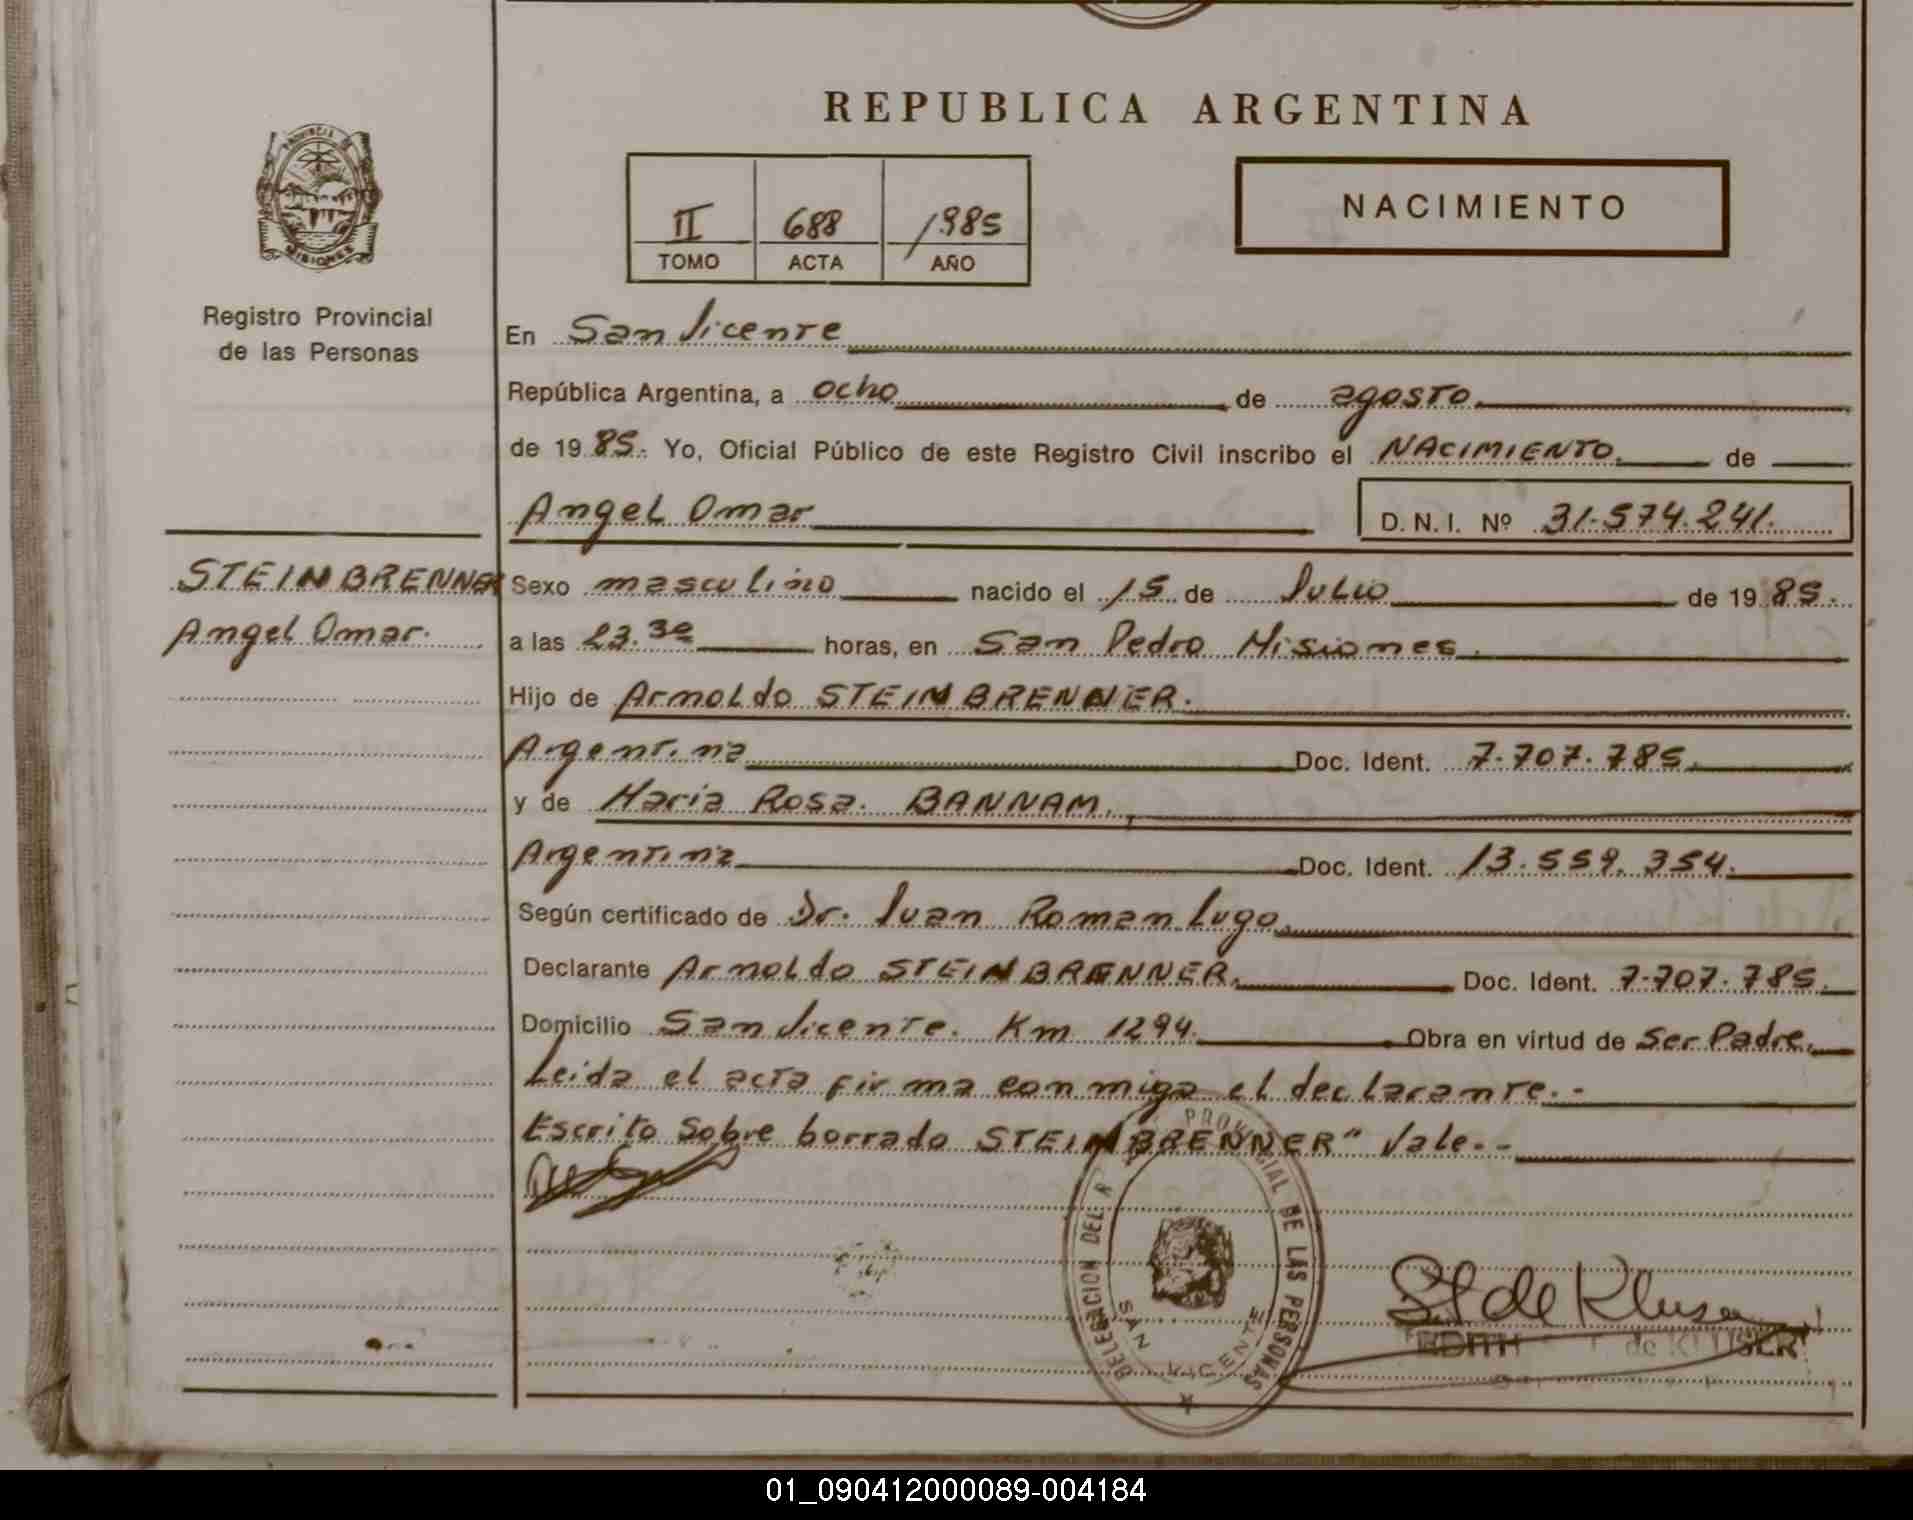 REPUBLICA ARGENTINA
PROVINCIA DE
MISIONES
Registro Provincial
de las Personas
II 688 1985
TOMO ACTA AÑO
NACIMIENTO
En San Vicente
República Argentina, a ocho de agosto
de 1985. Yo, Oficial Público de este Registro Civil inscribo el NACIMIENTO. de
Angel Omar D. N. I. Nº 31.574.241.
STEINBRENNER
Angel Omar.
Sexo masculino nacido el 15 de Julio de 1985.
a las 23.30 horas, en San Pedro Misiones.
Hijo de Arnoldo STEINBRENNER.
Argentina Doc. Ident. 7.707.785.
y de Maria Rosa. BANNAM.
Argentina Doc. Ident. 13.559.354.
Según certificado de Dr. Juan Roman Lugo.
Declarante Arnoldo STEINBRENNER. Doc. Ident. 7.707.785.
Domicilio San Vicente. Km 1294. Obra en virtud de Ser Padre.
Leida el acta firma conmigo el declarante.-
Escrito sobre borrado STEINBRENNER" Vale.-
DELEGACION DEL R PROVINCIAL DE LAS PERSONAS
SAN VICENTE
St de Kluser
EDITH de KLUSER
01_090412000089-004184